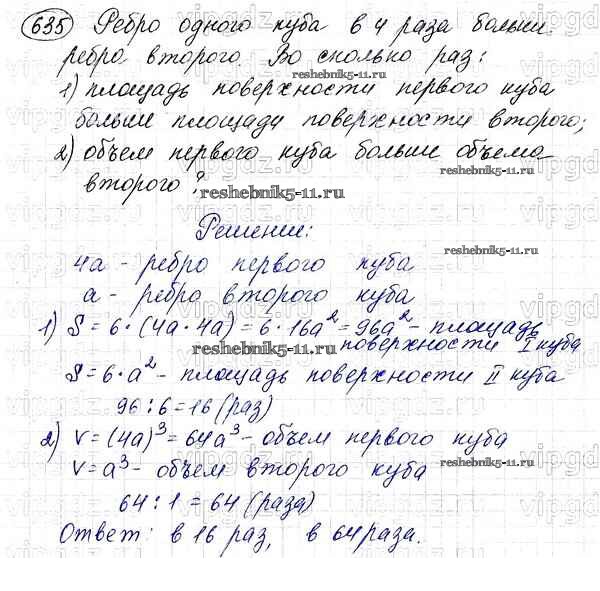 635 Ребро одного куба в 4 раза больше
ребро второго. Во сколько раз:
reshebnik5-11.ru
1) площадь поверхности первого куба
больше площади поверхности второго;
2) объем первого куба больше объема
второго?
reshebnik5-11.ru
Решение:
reshebnik5-11.ru
4a - ребро первого куба
a - ребро второго куба
1) S = 6 · (4a · 4a) = 6 · 16a² = 96a² - площадь
поверхности I куба
reshebnik5-11.ru
S = 6 · a² - площадь поверхности II куба
96 : 6 = 16 (раз)
2) V = (4a)³ = 64a³ - объем первого куба
V = a³ - объем второго куба
reshebnik5-11.ru
64 : 1 = 64 (раза)
Ответ: в 16 раз, в 64 раза.